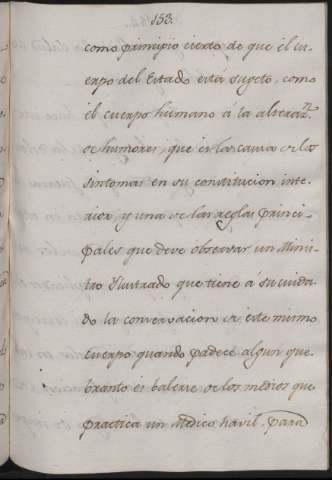 153.
como principio cierto de que él cu-
erpo del Estado está sugeto, como
él cuerpo humano á la alteraz.n
de humores, que es la causa de los
sintomas en su constitucion inte-
rior, y una de las reglas princi-
pales que deve observar un Minis-
tro Ylustrado que tiene á su cuida-
do la conservacion de este mismo
cuerpo quando padece algun que-
branto es valerse de los medios que
practica un Medico havil. para